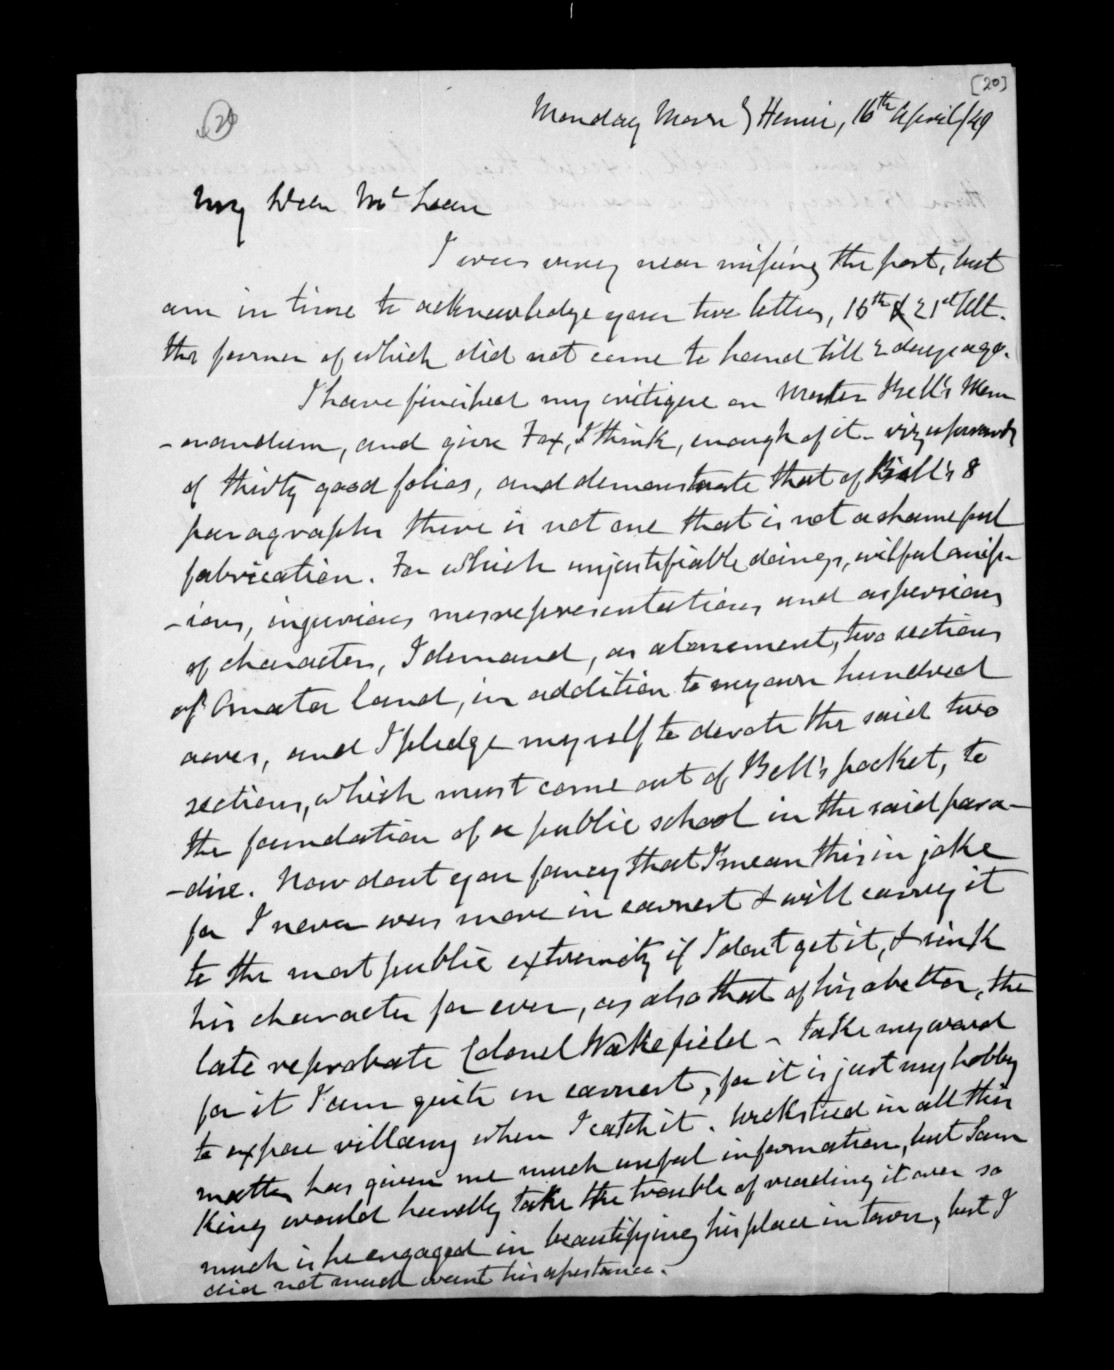 [20]
20
Monday Morng Henui, 16th April/49
My Dear McLean
I was very near missing the post, but
am in time to acknowledge your two letters, 16th & 21st Ult.
the former of which did not come to hand till 2 days ago.
I have finished my critique on Master Bell's Mem
-orandum, and give Fox, I think, enough of it - viz upwards
of thirty good folios, and demonstrate that of Bell's 8
paragraphs there is not one that is not a shameful
fabrication. For which unjustifiable doings, wilful omiss-
-ions, injurious misrepresentations and aspersions
of character, I demand, as atonement, two sections
of Omata land, in addition to my own hundred
acres, and I pledge myself to devote the said two
sections, which must come out of Bell's pocket, to
the foundation of a public school in the said para-
-dise. Now dont you fancy that I mean this in joke
for I never was more in earnest & will carry it
to the most public extremity if I dont get it, & sink
his character for ever, as also that of his abettor, the
late reprobate Colonel Wakefield - take my word
for it I am quite in earnest, for it is just my hobby
to expose villainy when I catch it. Wicksteed in all this
matter has given me much useful information, but Sam
King would hardly take the trouble of reading it over so
much is he engaged in beautifying his place in town, but I
did not much want his assistance.